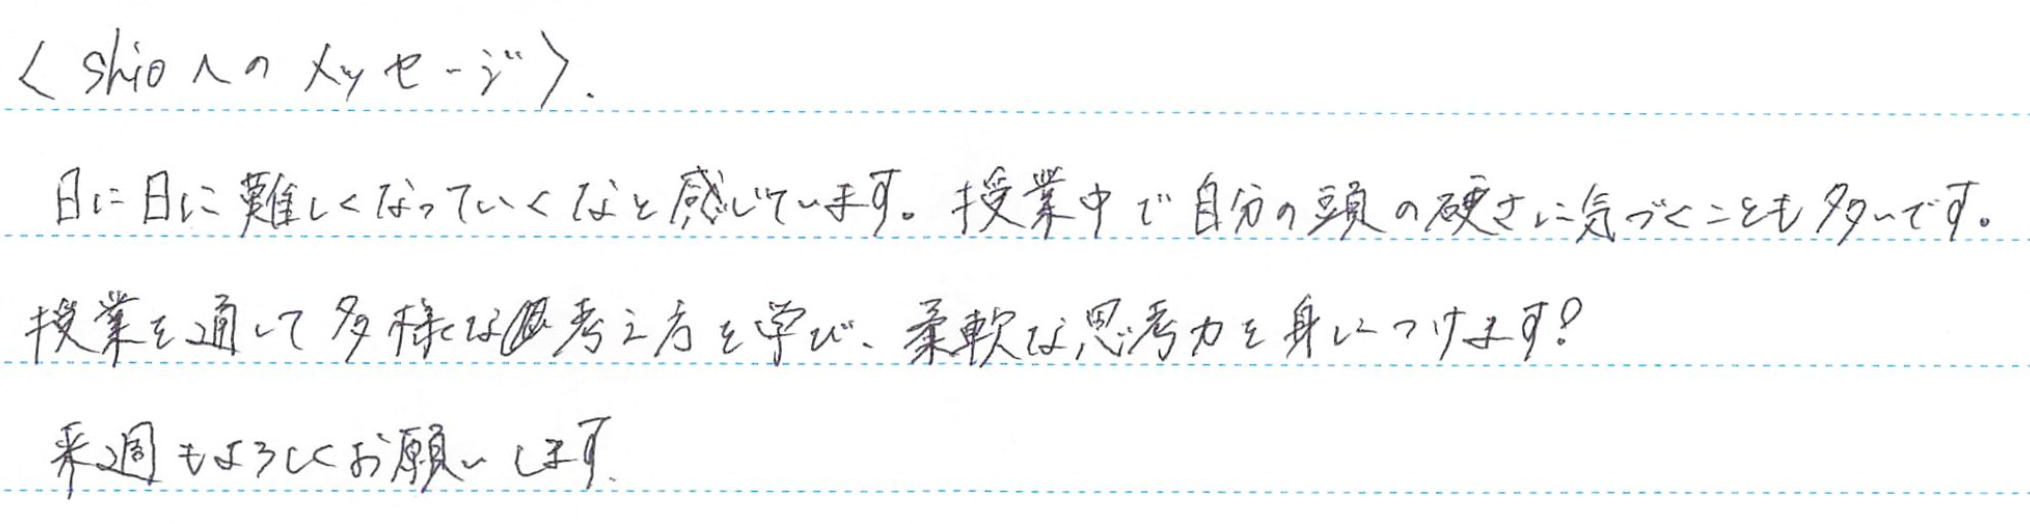 〈shioへのメッセージ〉.
日に日に難しくなっていくなと感じています。授業中で自分の頭の硬さに気づくことも多いです。
授業を通して多様な考え方を学び、柔軟な思考力を身につけます!
来週もよろしくお願いします.